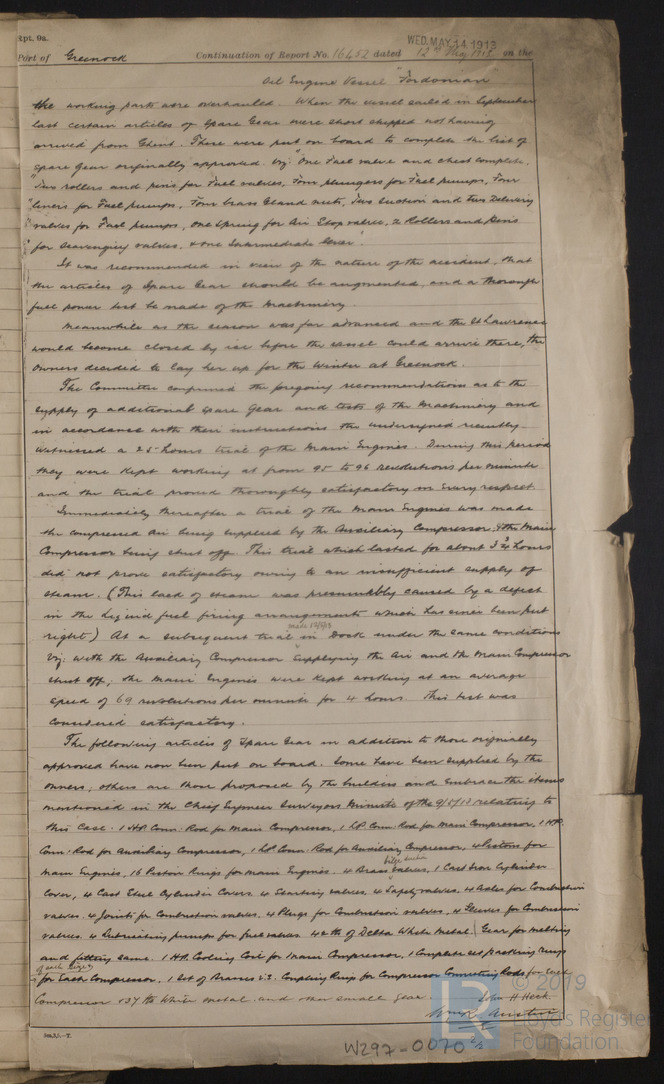 Rpt. 9a.
WED. MAY 14 1913
Port of Greenock Continuation of Report No. 16452 dated 12th May 1913 on the
Oil Engine Vessel "Fordonian"
the working parts were overhauled. When the vessel sailed in September
last certain articles of Spare Gear were short shipped not having
arrived from Ghent. These were put on board to complete the list of
spare gear originally approved viz: "One Fuel valve and chest complete,
"Two rollers and pins for Fuel valves, Four plungers for Fuel pumps, Four
"liners for Fuel pumps, Four brass Gland nuts, Two Suction and two Delivery
"valves for Fuel pumps, One Spring for Air Stop valve, 2 Rollers and Pins
"for Scavenging valves, & one Intermediate Lever".
It was recommended in view of the nature of the accident, that
the articles of Spare Gear should be augmented, and a thorough
full power test be made of the Machinery.
Meanwhile as the season was far advanced and the St Lawrence
would become closed by ice before the vessel could arrive there, the
Owners decided to lay her up for the Winter at Greenock.
The Committee confirmed the foregoing recommendations as to the
supply of additional spare Gear and tests of the Machinery and
in accordance with their instructions the undersigned recently
witnessed a 25 hours trial of the Main Engines. During this period
they were kept working at from 95 to 96 revolutions per minute
and the trial proved thoroughly satisfactory in every respect.
Immediately thereafter a trial of the Main Engines was made
the compressed air being supplied by the Auxiliary Compressor, & the Main
Compressor being shut off. This trial which lasted for about 3¾ hours
did not prove satisfactory owing to an insufficient supply of
steam. (This lack of steam was presumably caused by a defect
in the liquid fuel firing arrangements which has since been put
right) At a subsequent trial in Dock under the same conditions
made 12/5/13
viz: with the Auxiliary Compressor supplying the Air and the Main Compressor
shut off, the Main Engines were kept working at an average
speed of 69 revolutions per minute for 4 hours. This test was
considered satisfactory.
The following articles of Spare Gear in addition to those originally
approved have now been put on board. Some have been supplied by the
owners, others are those proposed by the builders and embrace the items
mentioned in the Chief Engineer Surveyors Minute of the 9/5/13 relating to
this case. 1 H.P. Conn. Rod for Main Compressor, 1 L.P. Conn. Rod for Main Compressor, 1 H.P.
Conn. Rod for Auxiliary Compressor, 1 L.P. Conn. Rod for Auxiliary Compressor, 4 Pistons for
Main Engines, 16 Piston Rings for Main Engines. 4 Brass bilge suction valves, 1 Cast Iron Cylinder
Cover, 4 Cast Steel Cylinder Covers. 4 Starting valves, 4 Safety valves, 4 Axles for Combustion
valves. 4 Joints for Combustion valves. 4 Plugs for Combustion valves, 4 Sleeves for Combustion
valves. 4 Lubricating pumps for fuel valves of Delta White Metal. Gear for melting
and fitting same. 1 H.P. Cooling Coil for Main Compressor, 1 Complete set packing rings
of each size
for Each Compressor. 1 Set of Brasses Coupling Rings for Compressor Connecting Rods for each
Compressor 137 lb White metal and other small gear. John H Heck
Austin
Im. 3,1.—T.
W297-0070
LR
© 2019
Lloyd's Register
Foundation